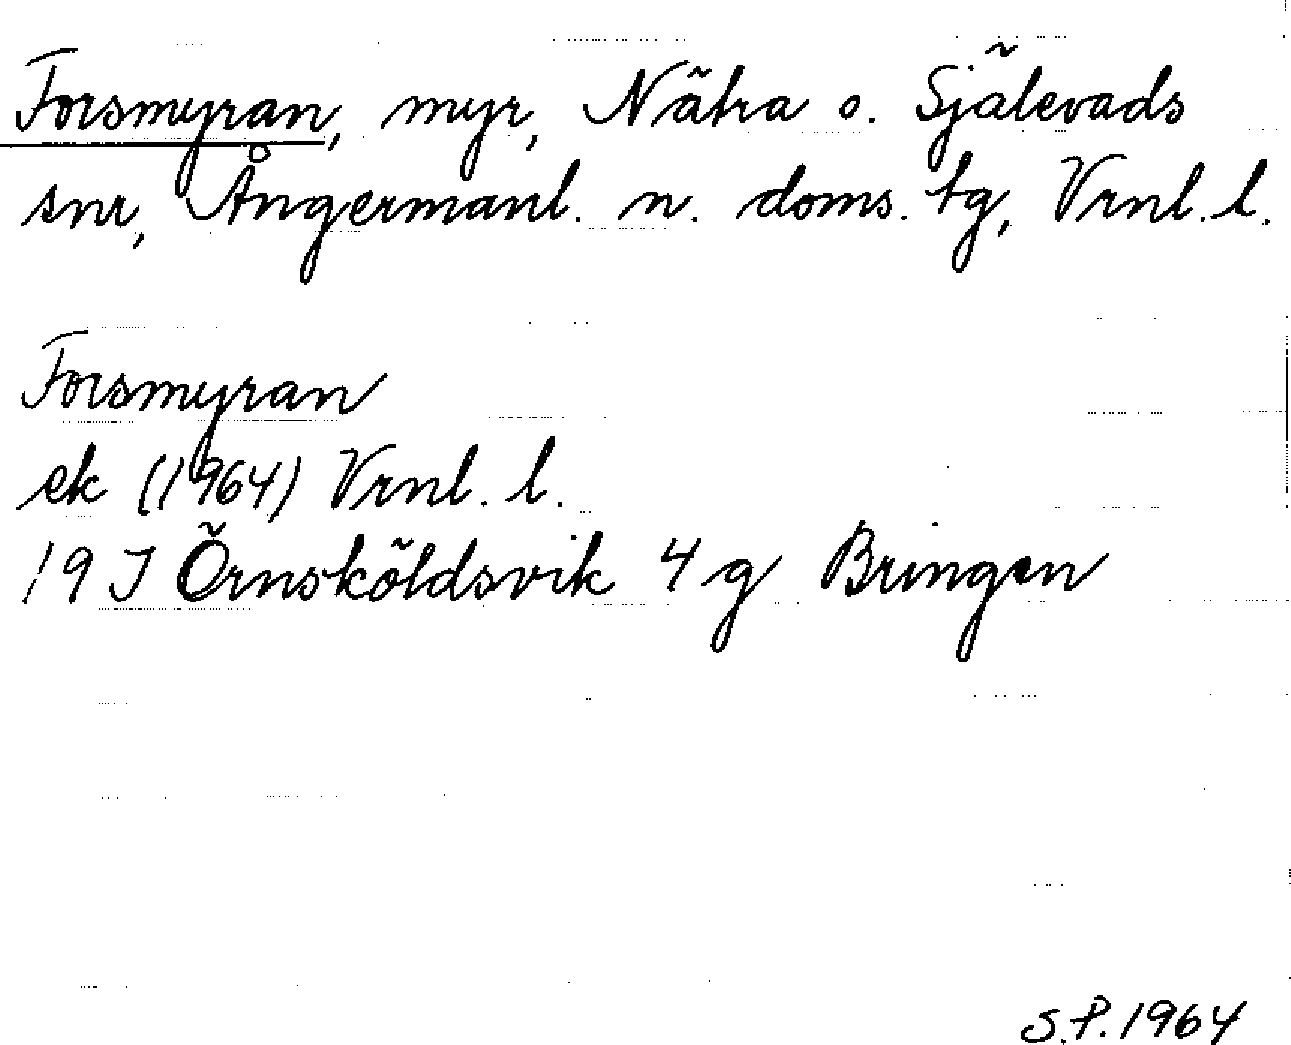 Forsmyran, myr, Nätra o. Själevads
snr, Ångermanl. n. doms. tg, Vrnl. l.
Forsmyran
ek (1964) Vrnl. l.
19 J Örnsköldsvik 4 g Bringen
S.P. 1964